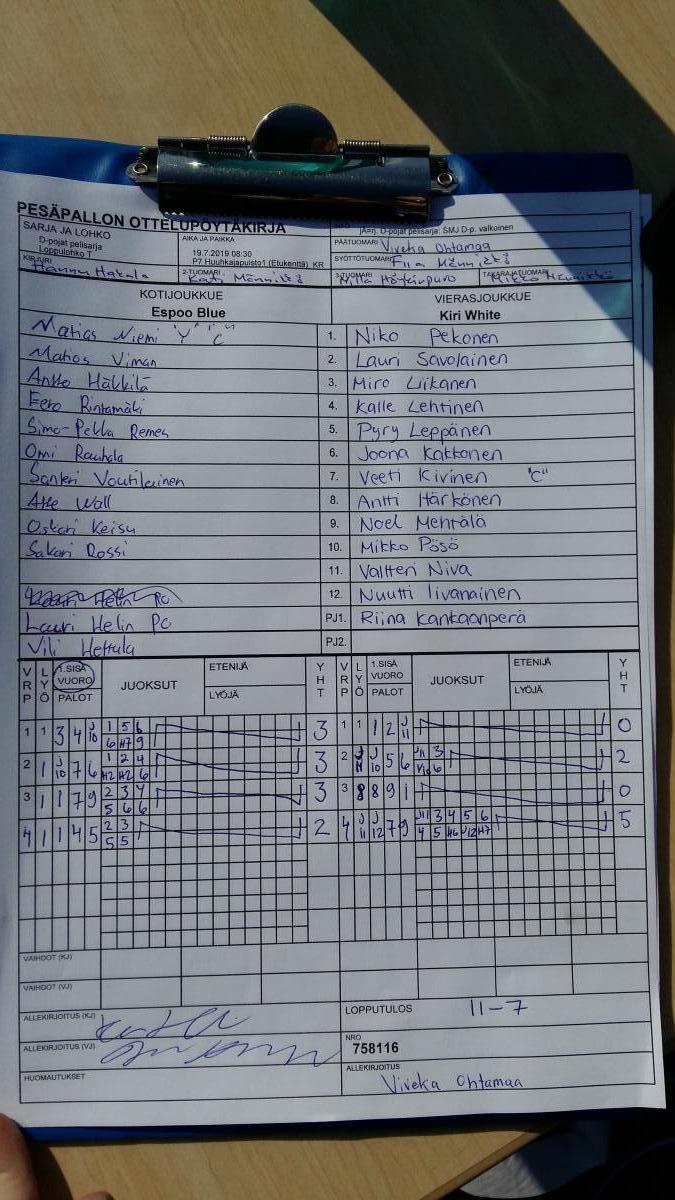 PESÄPALLON OTTELUPÖYTÄKIRJA
SARJA JA LOHKO
D-pojat pelisarja
Loppulohko T
AIKA JA PAIKKA
19.7.2019 08:30
P7 Huuhkajapuisto1 (Etukenttä) KR
pelisarja: SMJ D-p. valkoinen
PÄÄTUOMARI Viveka Ohtamaa
SYÖTTÖTUOMARI Fiia Männikkö
KIRJURI Hannu Hakala
2-TUOMARI Kati Männikkö
3-TUOMARI
TAKARAJATUOMARI Mikko Männikkö
KOTIJOUKKUE
Espoo Blue
VIERASJOUKKUE
Kiri White
Matias Niemi "V" "C" 1. Niko Pekonen
Matias Viman 2. Lauri Savolainen
Antto Häkkilä 3. Miro Liikanen
Eero Rintamäki 4. Kalle Lehtinen
Simo-Pekka Remes 5. Pyry Leppänen
Omi Rauhala 6. Joona Kakkonen
Santeri Voutilainen 7. Veeti Kivinen "C"
Atte Wall 8. Antti Härkönen
Oskari Keisu 9. Noel Mehtälä
Sakari Rossi 10. Mikko Pösö
11. Valtteri Niva
12. Nuutti Iivanainen
Lauri Helin PC PJ1. Riina Kankaanperä
Vili Hettula PJ2.
VRP LYÖ 1.SISÄ VUORO PALOT JUOKSUT ETENIJÄ LYÖJÄ YHT VRP LYÖ 1.SISÄ VUORO PALOT JUOKSUT ETENIJÄ LYÖJÄ YHT
1 1 3 4 J10 1 5 6 3 1 1 1 2 J11 0
6 H7 9
2 1 J10 7 6 1 2 4 3 2 J11 J10 5 6 J11 3 2
H2 H2 6 V10 6
3 1 1 7 9 2 3 4 3 3 8 8 9 1 0
5 6 6
4 1 1 4 5 2 3 2 4 J11 J12 7 9 J11 3 4 5 6 5
5 5 4 5 H6 J12 H7
VAIHDOT (KJ)
VAIHDOT (VJ)
ALLEKIRJOITUS (KJ)
LOPPUTULOS 11-7
ALLEKIRJOITUS (VJ)
NRO
758116
HUOMAUTUKSET
ALLEKIRJOITUS
Viveka Ohtamaa